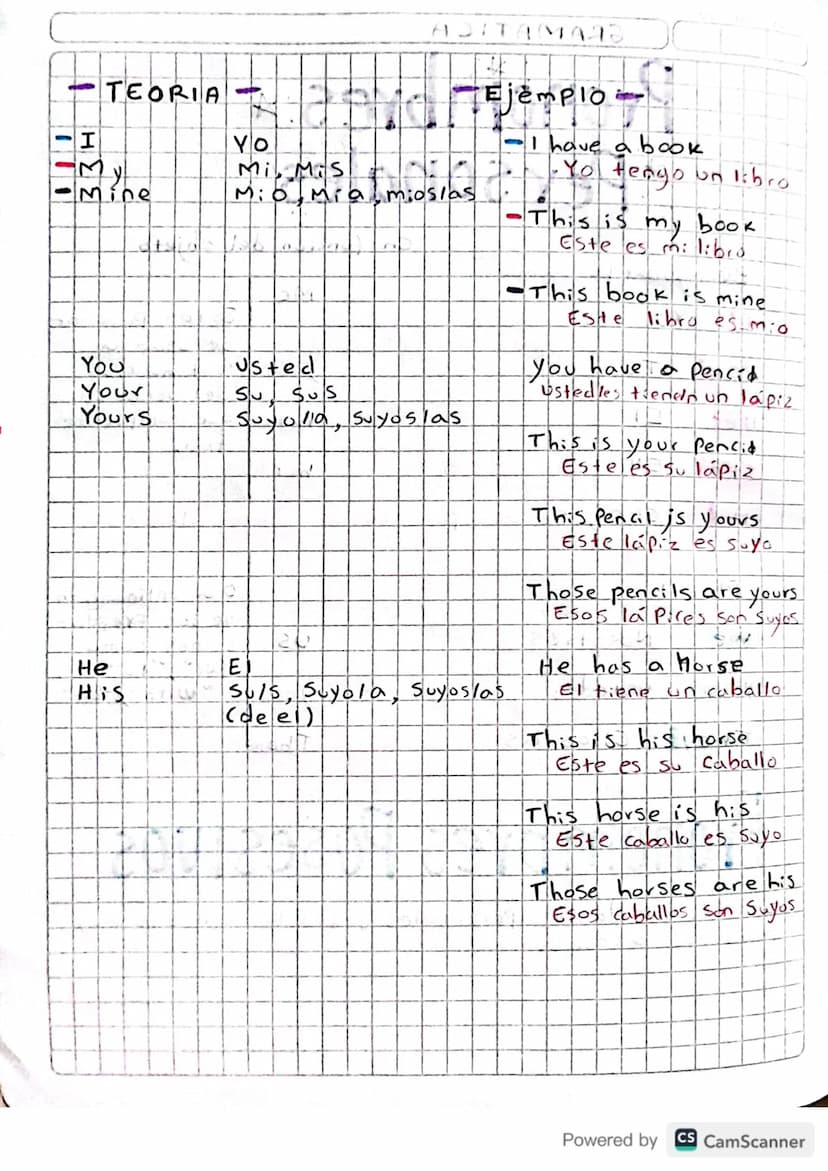 GRAMATICA
- TEORIA -
- Ejemplo -
- I YO
- My Mi, Mis
- Mine Mio, Mia, mios/as
- I have a book
Yo tengo un libro
- This is my book
Este es mi libro
- This book is mine
Este libro es mio
You Usted
Your Su, Sus
Yours Suyo/la, Suyos/as
You have a pencil
Usted/es tienen un lápiz
This is your pencil
Este es su lápiz
This pencil is yours
Este lápiz es suyo
Those pencils are yours
Esos lápices son suyos
He El
His Su/s, Suyo/a, Suyos/as
(de el)
He has a Horse
El tiene un caballo
This is his horse
Este es su caballo
This horse is his
Este caballo es suyo
Those horses are his
Esos caballos son suyos
Powered by CS CamScanner